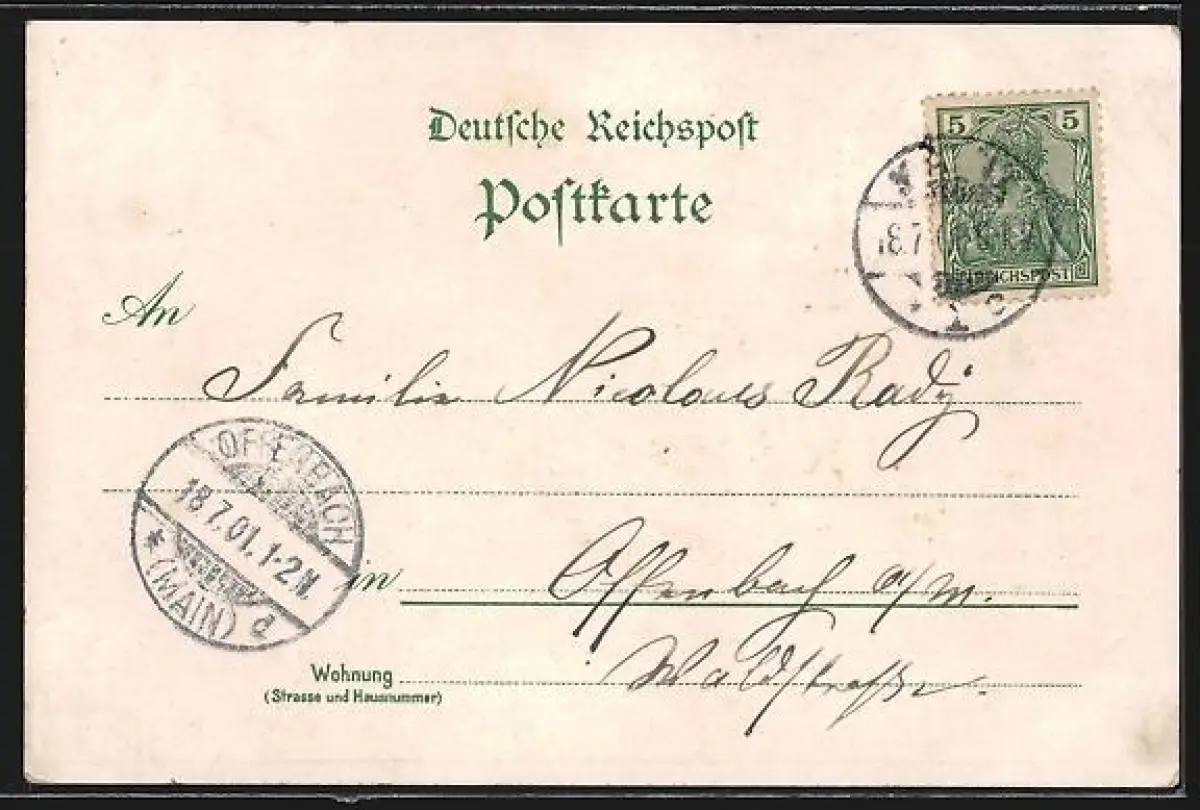 Deutsche Reichspost
Postkarte
5 5
REICHSPOST
8.7
1 c
An
Familie Nicolaus Rady
OFFENBACH
18.7.01.1-2N.
* (MAIN) d
in Offenbach a/m.
Wohnung Waldstraße.
(Strasse und Hausnummer)